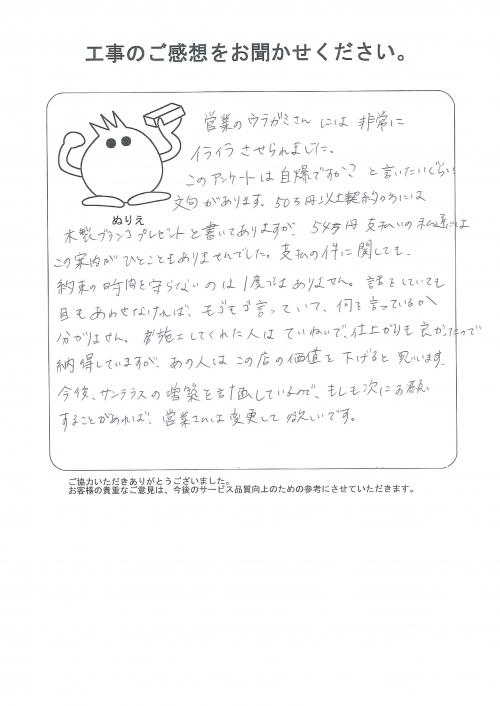 工事のご感想をお聞かせください。
営業のウラガミさん には 非常に
イライラ させられました。
このアンケートは 自爆ですか? と言いたいくらい
文句があります。50万円以上契約の方には
ぬりえ
木製ブランコ プレゼントと書いてありますが、54万円 支払いの私達には
この案内が ひとこともありませんでした。支払の件に関しても、
約束の時間を守らないのは 1度ではありません。話をしていても
目もあわせなければ、モゴモゴ言っていて、何を言っているか
分かりません。施工してくれた人は ていねいで、仕上がりも良かったので
納得していますが、あの人は この店の価値を下げると 思います。
今後、サンテラスの増築を計画しているので、もしも次にお願い
することがあれば、営業さんは変更して欲しいです。
ご協力いただきありがとうございました。
お客様の貴重なご意見は、今後のサービス品質向上のための参考にさせていただきます。